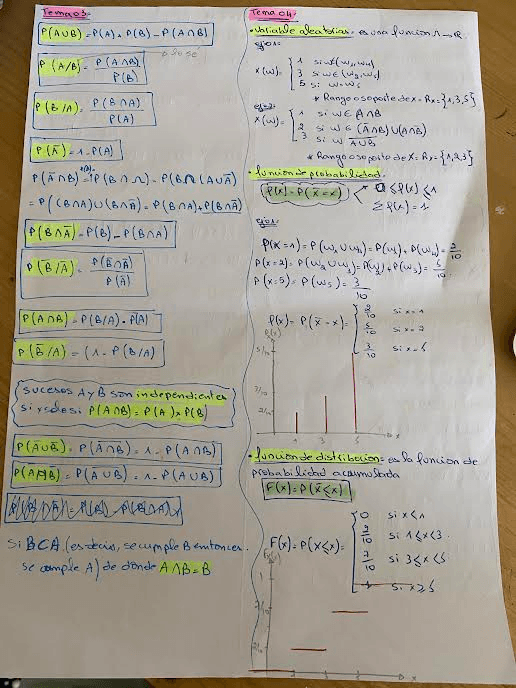 Tema 03:
P(A∪B) = P(A) + P(B) - P(A∩B)
P(A/B) = P(A∩B) / P(B)
P(B/A) = P(B∩A) / P(A)
P(Ā) = 1 - P(A)
= P((B∩A)∪(B∩Ā)) = P(B∩A) + P(B∩Ā)
P(B∩Ā) = P(B) - P(B∩A)
P(B̄/Ā) = P(B̄∩Ā) / P(Ā)
P(A∩B) = P(B/A) · P(A)
P(B̄/A) = (1 - P(B/A)
sucesos A y B son independientes
si y solo si P(A∩B) = P(A) x P(B)
= 1 - P(A∩B)
= 1 - P(A∪B)
si B⊂A (es decir, se cumple B entonces
se cumple A) de donde A∩B = B
Tema 04:
• variable aleatoria: es una función Λ → R.
ejm:
X(w) = { 1 si w∈(w₁, w₄)
3 si w∈(w₂, w₃)
5 si w=w₅
* Rango o soporte de x = Rx = {1,3,5}
ejm2:
X(w) = { 1 si w∈A∩B
2 si w∈(Ā∩B)∪(A∩B̄)
3 si w
* Rango o soporte de X = Rx = {1,2,3}
• función de probabilidad.
f(x) = P(X=x) 0 ≤ f(x) ≤ 1
Σ f(x) = 1
ejm:
P(x=1) = P(w₁∪w₄) = P(w₁) + P(w₄) = 2/10
P(x=2) = P(w₂∪w₃) = P(w₂) + P(w₃) = 5/10
P(x=5) = P(w₅) = 3/10
f(x) = P(X=x) = { 2/10 si x=1
5/10 si x=2
3/10 si x=5
5/10
2/10
1 3 5 x
• función de distribución = es la función de
probabilidad acumulada
F(x) = P(X≤x)
F(x) = P(X≤x) = { 0 si x<1
2/10 si 1≤x<3
7/10 si 3≤x<5
1 si x≥5
1
7/10
2/10
x